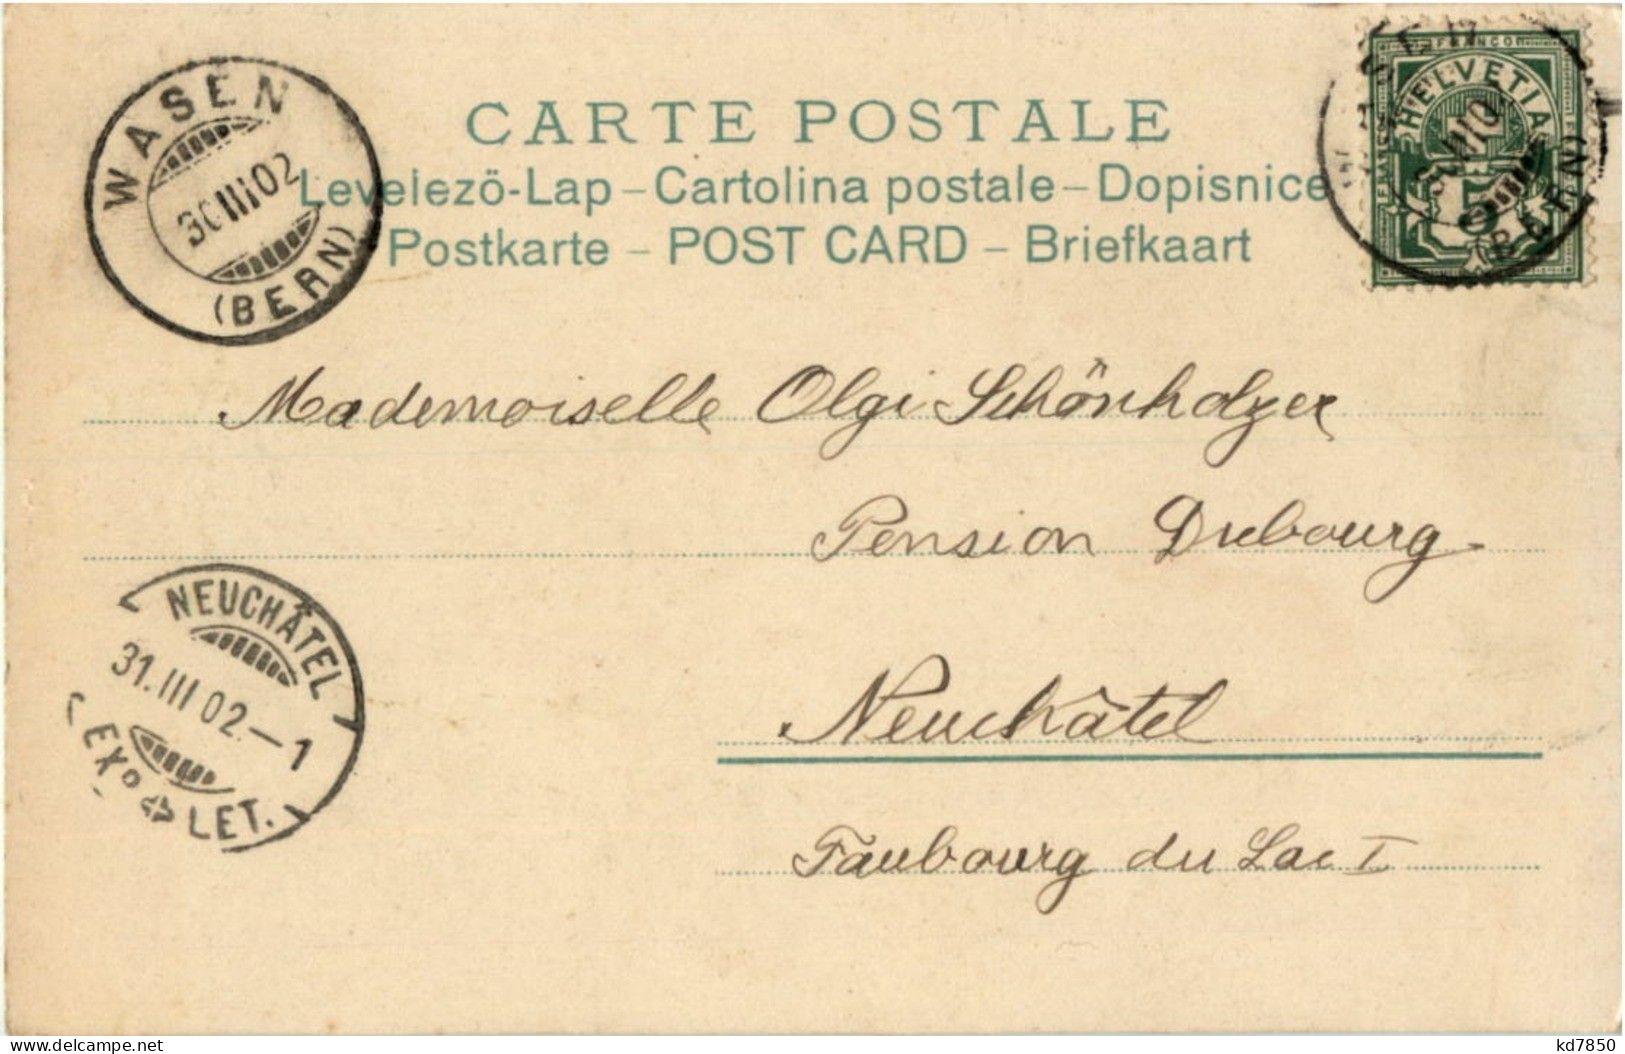 WASEN
30 III 02
(BERN)
CARTE POSTALE
Levelezö-Lap – Cartolina postale – Dopisnice
Postkarte – POST CARD – Briefkaart
FRANCO
HELVETIA
5
(BERN)
Mademoiselle Olgi Schönholzer
Pension Dubourg
NEUCHÂTEL
31. III 02. – 1
EXP. LET.
Neuchâtel
Faubourg du Lac I
delcampe.net
kd7850